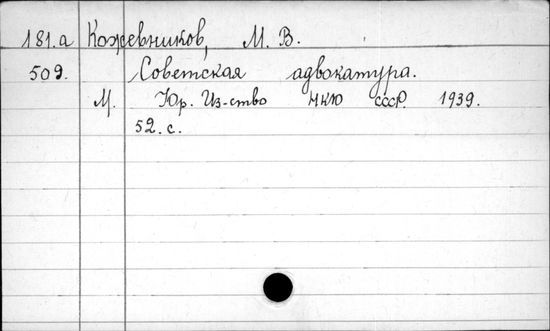 181.а Кожевников, М. В.
509. Советская адвокатура.
М. Юр. Из-ство НКЮ СССР. 1939.
52. с.